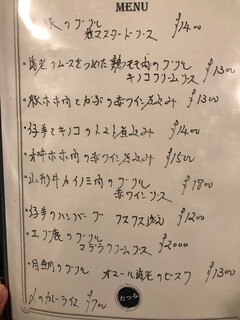 MENU
豚のグリル
粒マスタードソース ¥1400
・海老のムースをつめた鶏モモ肉のグリル
キノコクリームソース ¥1300
・豚ホホ肉とかぶの赤ワイン煮込み ¥1300
・仔羊とキノコのトマト煮込み ¥1400
・牛ホホ肉の赤ワイン煮込み ¥1500
・山形牛カイノミ肉のグリル
赤ワインソース ¥1800
・仔羊のハンバーグ クスクス添え ¥1200
・エゾ鹿のグリル
マデラクリームソース ¥2000
・のグリル オマール海老のビスク ¥1300
〆のカレーライス ¥700
たつみ